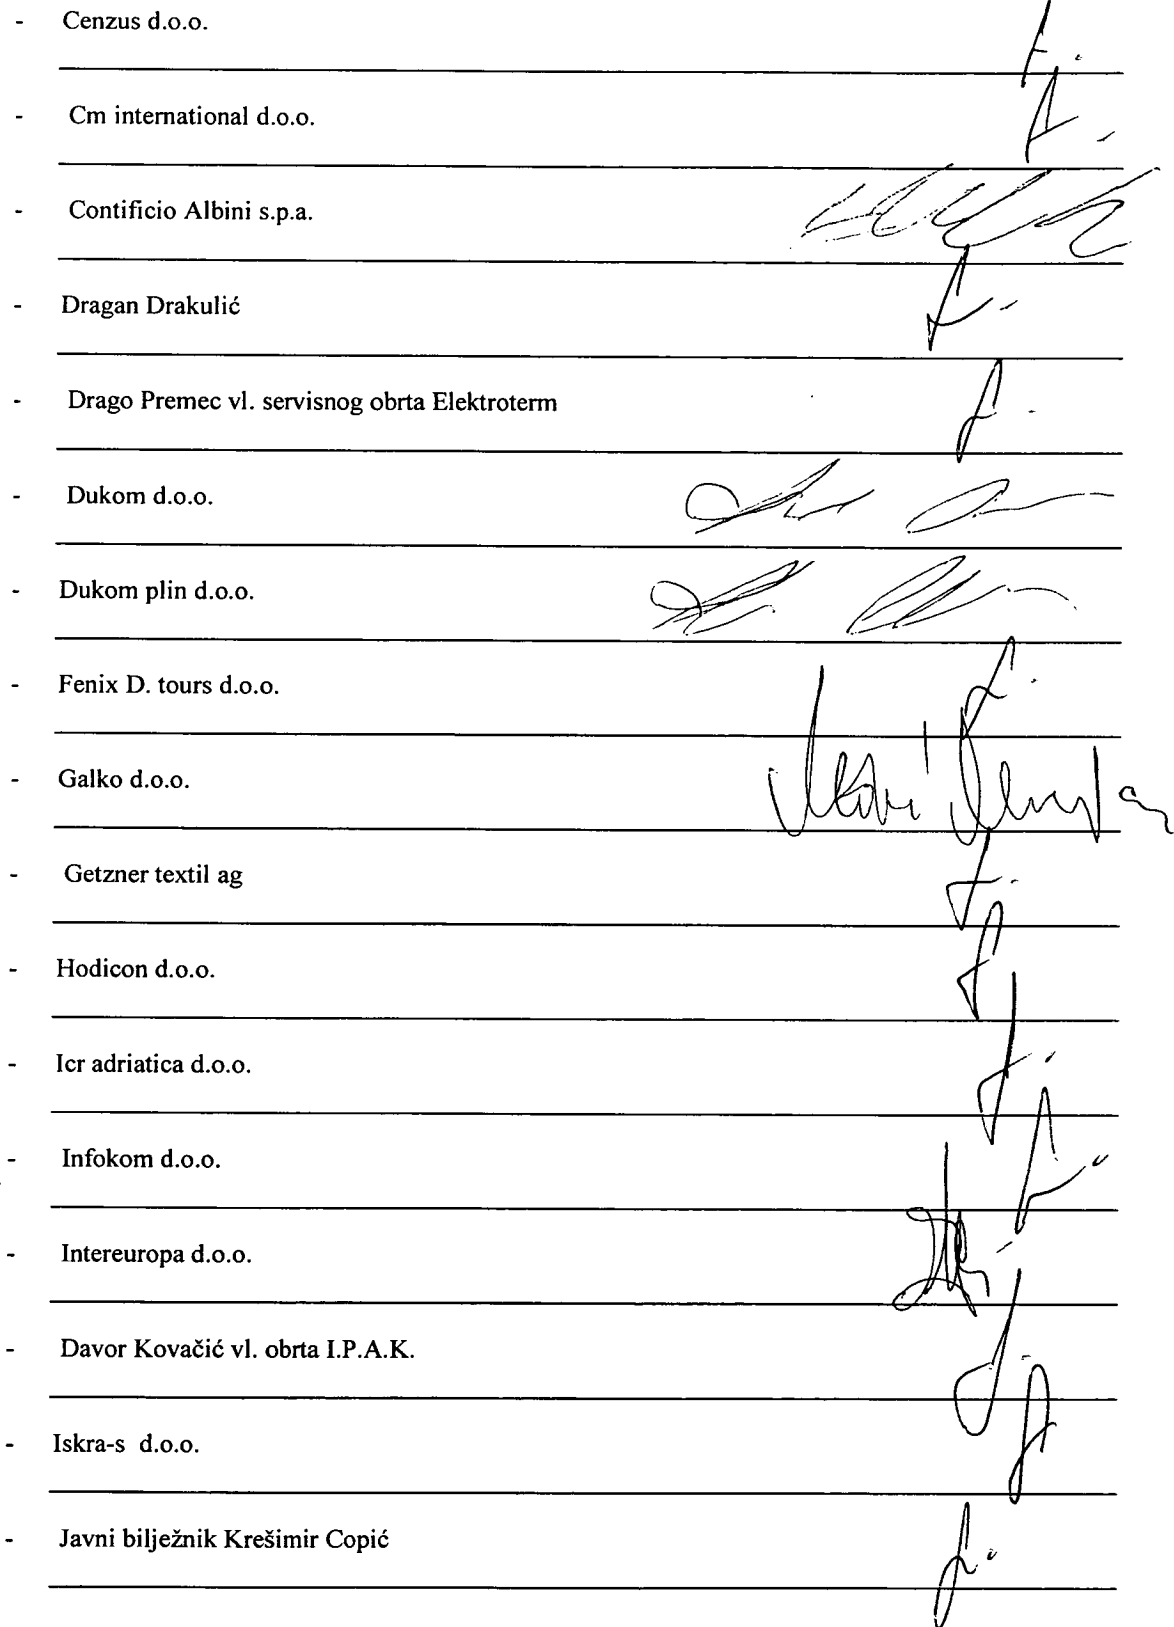 - Cenzus d.o.o.
- Cm international d.o.o.
- Contificio Albini s.p.a.
- Dragan Drakulić
- Drago Premec vl. servisnog obrta Elektroterm
- Dukom d.o.o.
- Dukom plin d.o.o.
- Fenix D. tours d.o.o.
- Galko d.o.o.
- Getzner textil ag
- Hodicon d.o.o.
- Icr adriatica d.o.o.
- Infokom d.o.o.
- Intereuropa d.o.o.
- Davor Kovačić vl. obrta I.P.A.K.
- Iskra-s d.o.o.
- Javni bilježnik Krešimir Copić